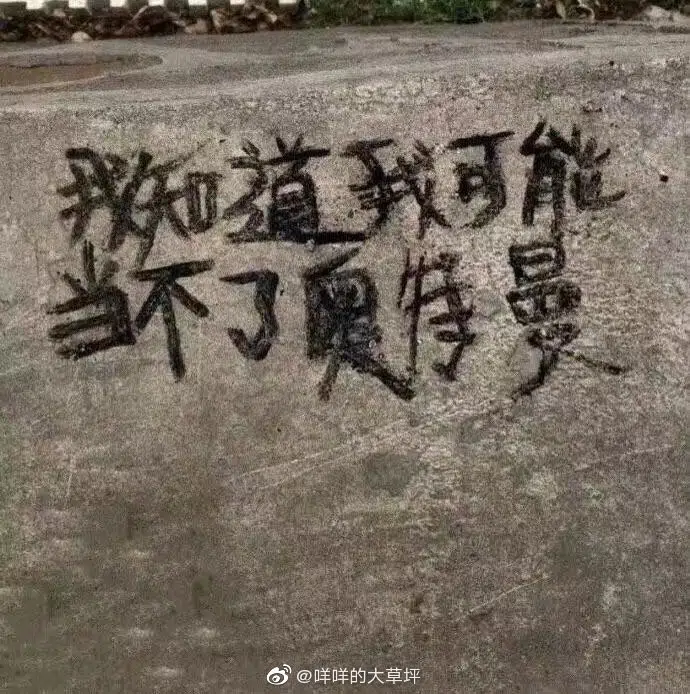 我知道我可能
当不了奥特曼
@咩咩的大草坪